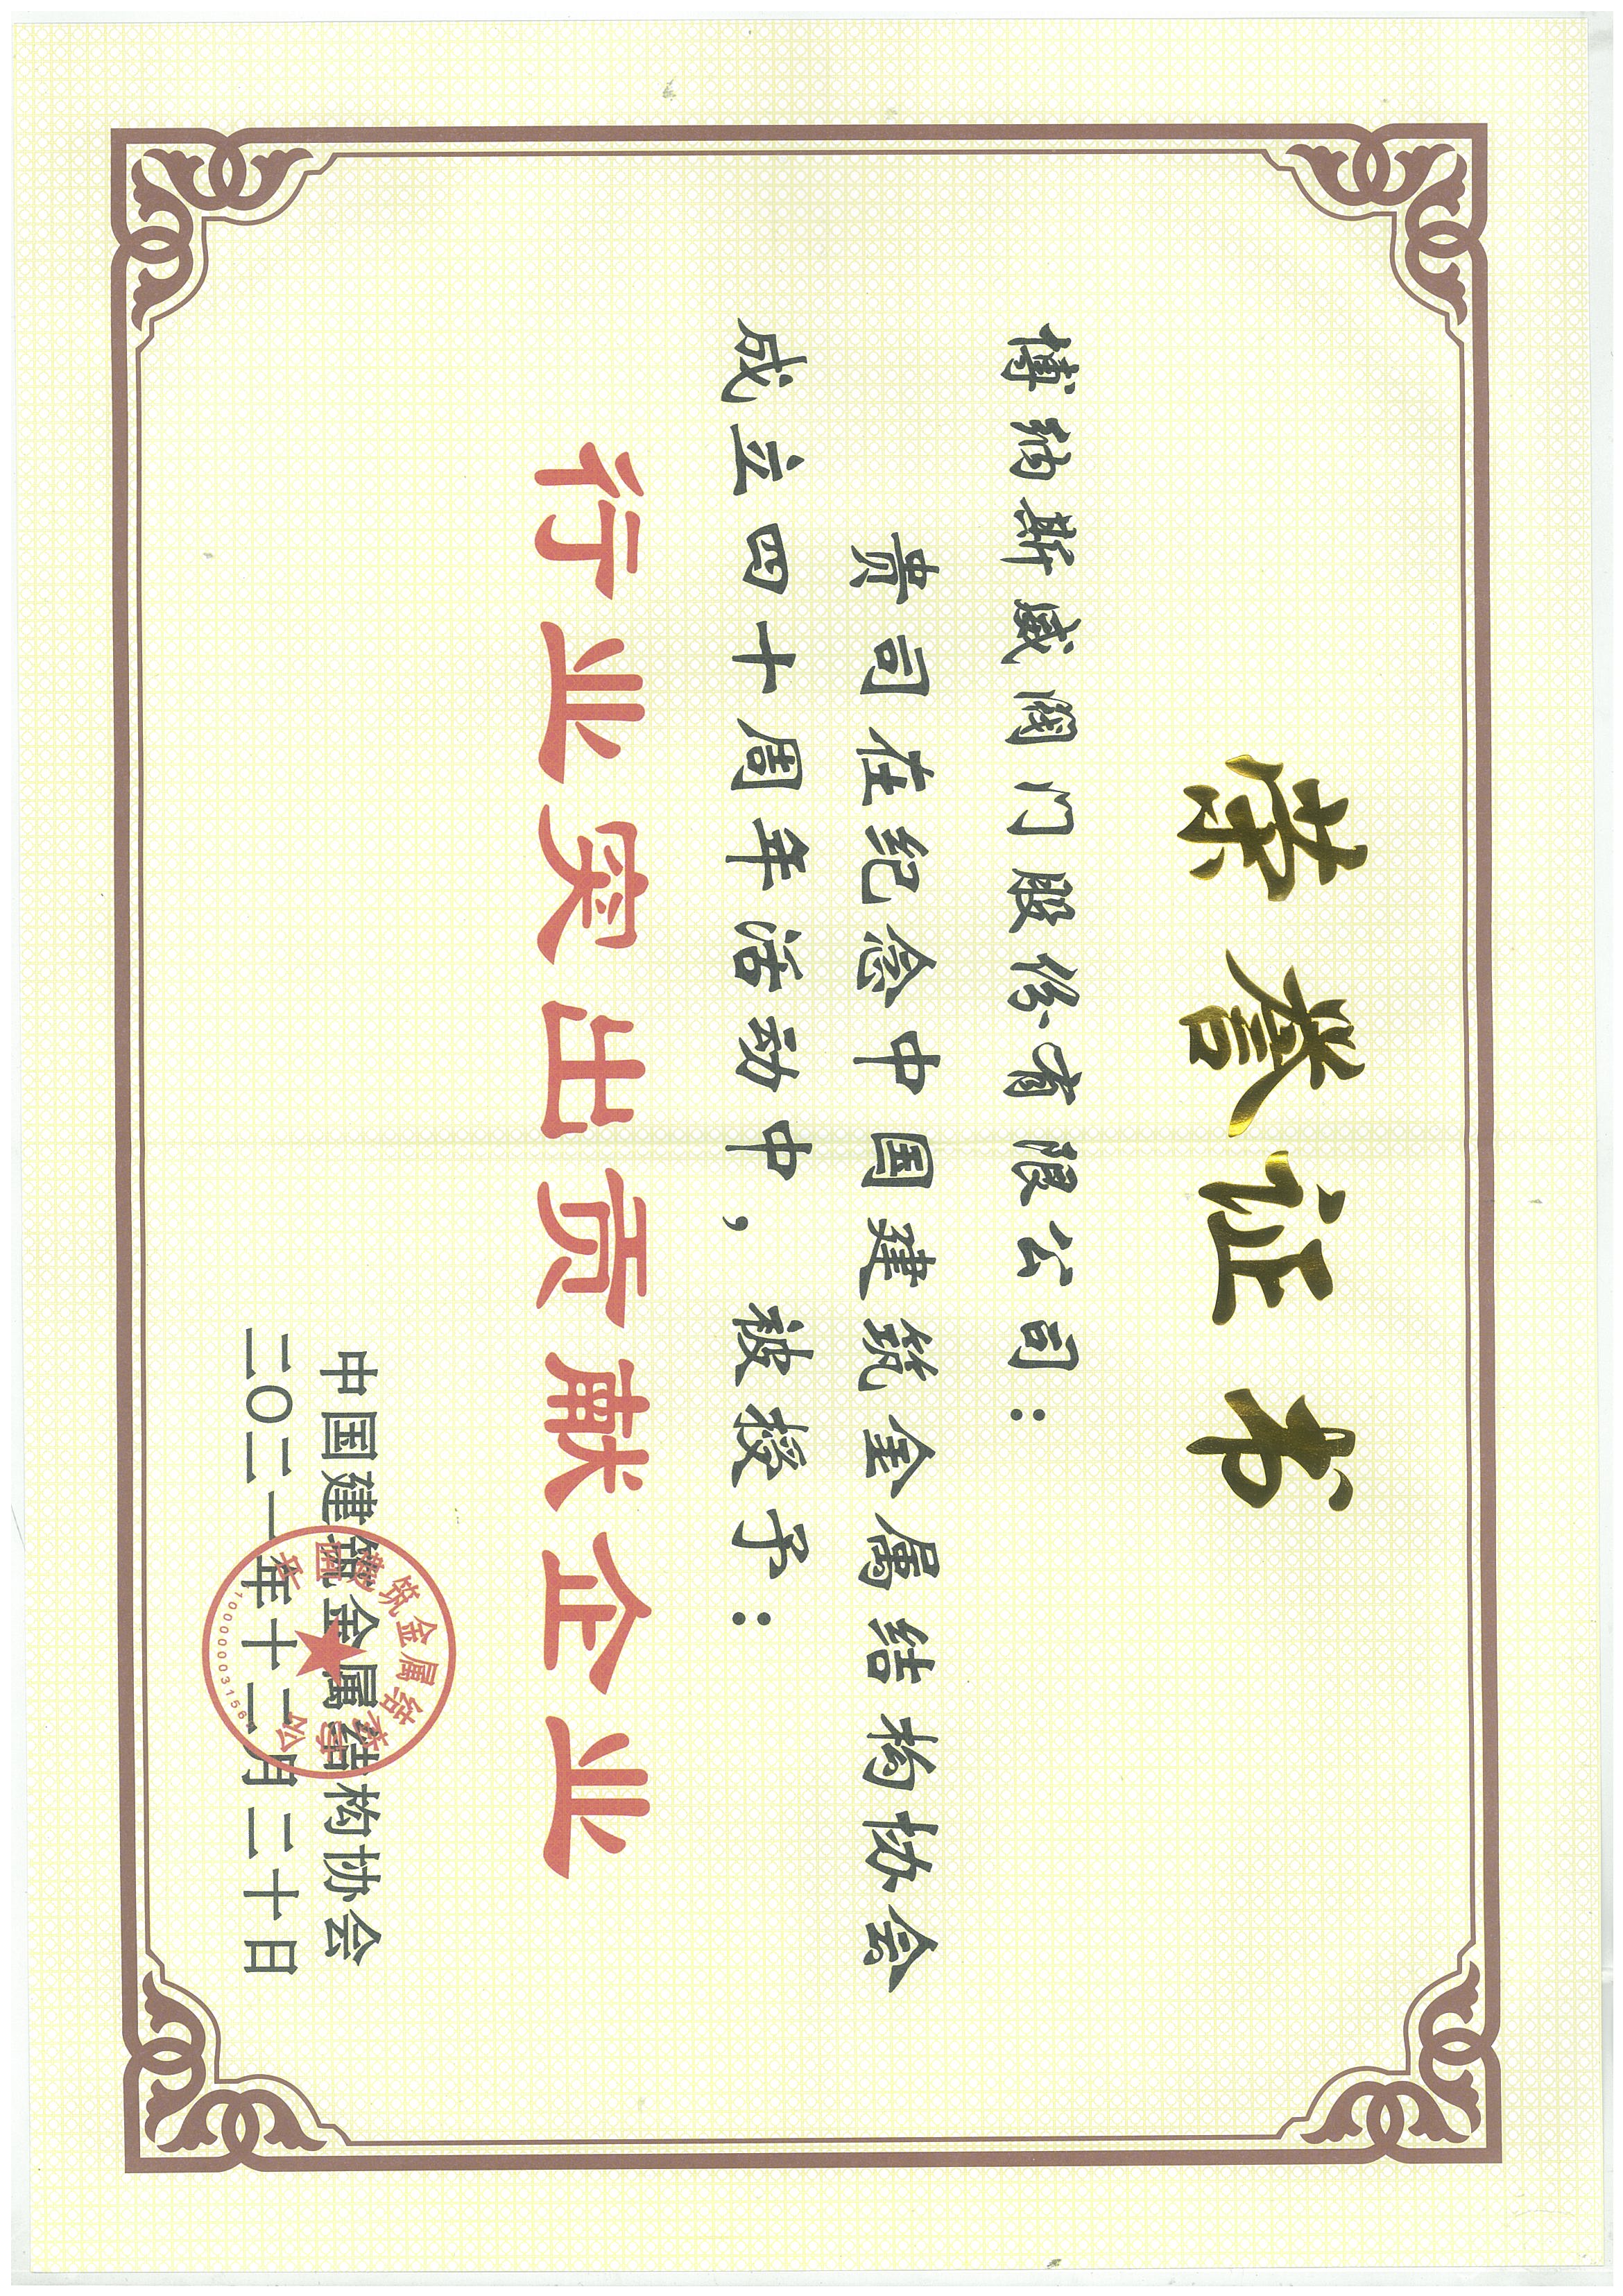 荣誉证书
博纳斯威阀门股份有限公司：
贵司在纪念中国建筑金属结构协会
成立四十周年活动中，被授予：
行业突出贡献企业
中国建筑金属结构协会
二〇二一年十二月二十日
中国建筑金属结构协会
1000000003156